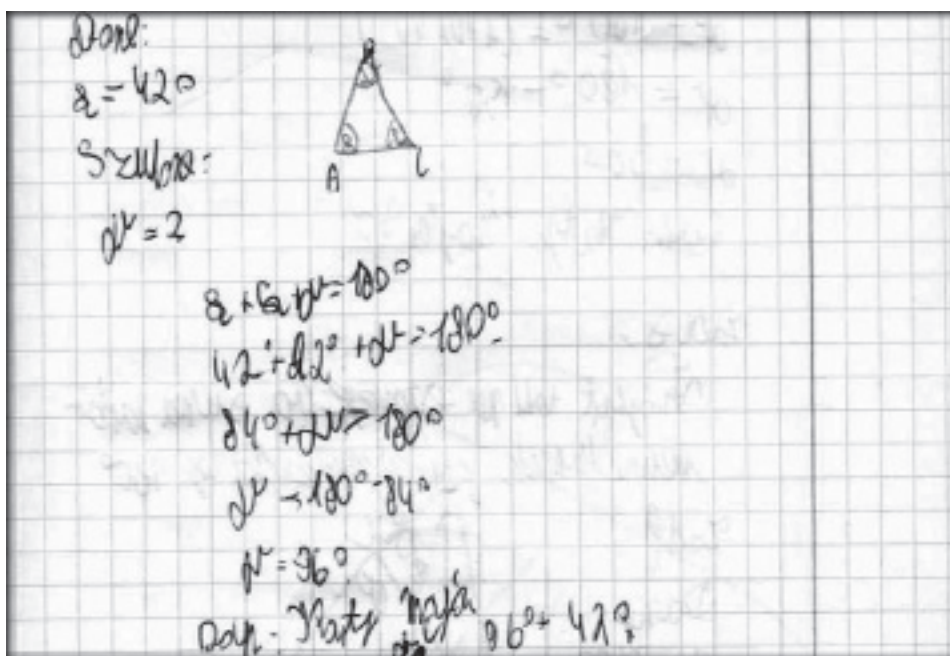 Dane:
α = 42°
Szukane:
γ = ?
A
α + α + γ = 180°
42° + 42° + γ = 180°
84° + γ = 180°
γ = 180° - 84°
γ = 96°
Odp. Kąty mają
96° + 42°.